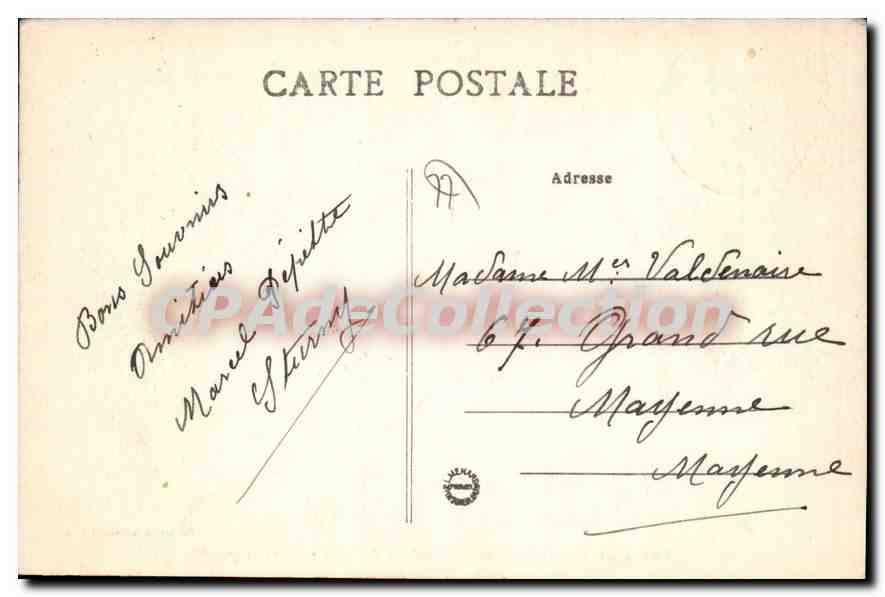 CARTE POSTALE
Bons Souvenirs
Amitiés
Marcel Pépitte
Sturny
77
Adresse
Madame Mce Valdenaire
67. Grand rue
Mayenne
Mayenne
CPAdeCollection